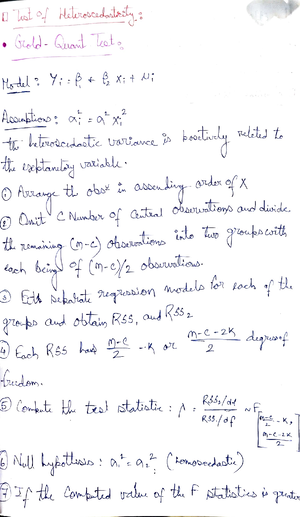 Test of Heteroscedasticity:
• Gold-Quant Test:
Model: Yi = β1 + β2 Xi + ui
Assumptions: σi² = σ² xi²
the heteroscedastic variance is positively related to
the explanatory variable.
① Arrange the obsⁿ in assending order of X
② Omit C Number of Central observations and divide
the remaining (n-c) observations into two groups with
each being of (n-c)/2 observations.
③ separate regression models for each of the
groups and obtain RSS1 and RSS2
④ Each RSS has (n-c)/2 - K or (n-c-2K)/2 degrees of
freedom.
⑤ Compute the test statistic: λ = (RSS2/df)/(RSS1/df) ~ F[(n-c)/2 - K, (n-c-2K)/2]
⑥ Null hypothesis: σ1² = σ2² (homoscedastic)
⑦ If the computed value of the F statistics is greater